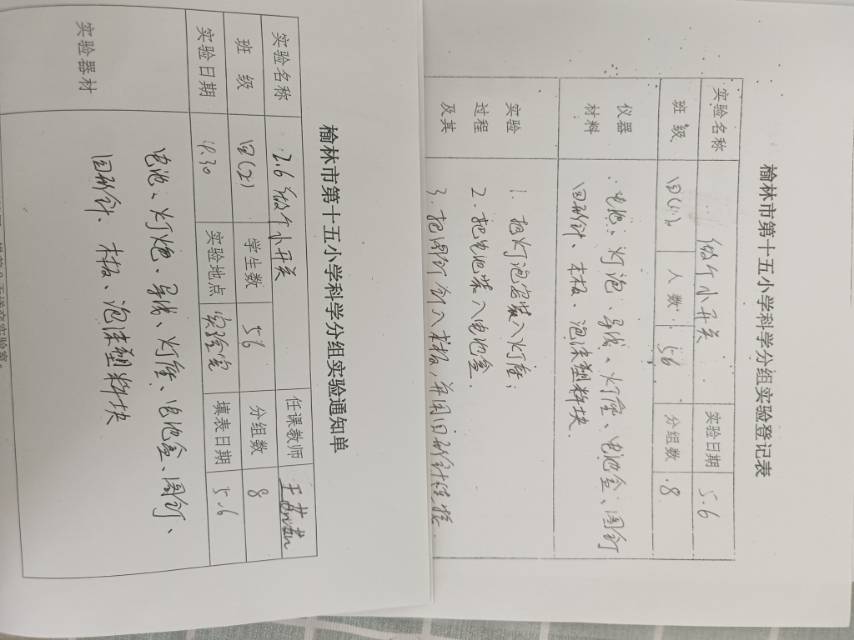 榆林市第十五小学科学分组实验通知单
实验名称 2.6 做个小开关 任课教师
班级 四(2) 学生数 56 分组数 8
实验日期 4.30 实验地点 实验室 填表日期 5.6
实验器材
电池、灯炮、导线、灯座、电池盒、图钉、
回形针、木板、泡沫塑料块
榆林市第十五小学科学分组实验登记表
实验名称 做个小开关 实验日期 5.6
班级 四(2) 人数 56 分组数 8
仪器材料
电池、灯泡、导线、灯座、电池盒、图钉
回形针、木板、泡沫塑料块.
实验
过程
及其
1. 把灯泡安装入灯座;
2. 把电池装入电池盒.
3. 把图钉钉入木板,并用回形针连接.